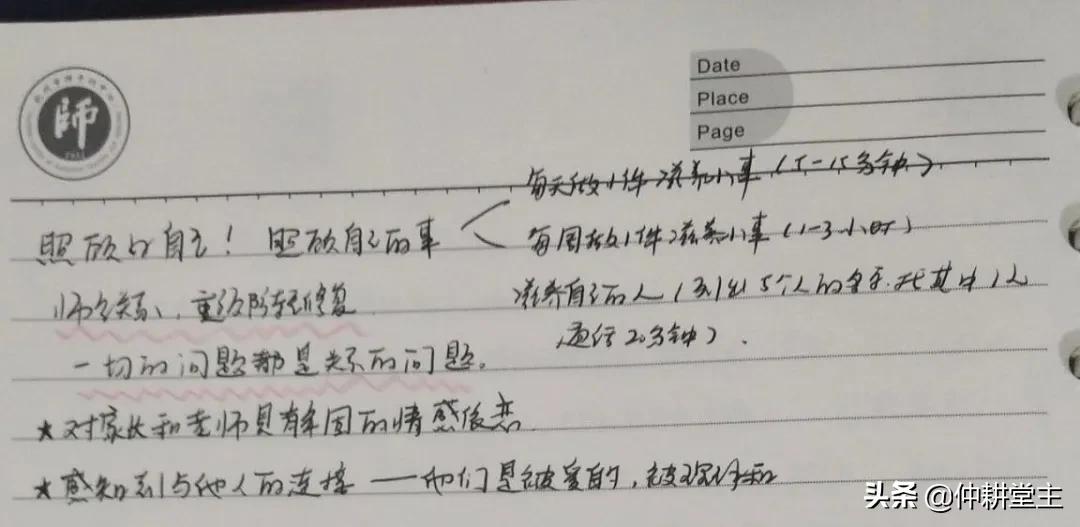 師
Date
Place
Page
每天做1件滋养小事（5-15分钟）
照顾好自己！ 照顾自己的事
每周做1件滋养小事（1-3小时）
滋养自己的人（列出5个人的名字，找其中1人
通话20分钟）．
师生关系、重经
一切的问题都是关系的问题。
★对家长和老师具有牢固的情感依恋
★感知到与他人的连接——他们是被爱的，被
头条 @仲耕堂主